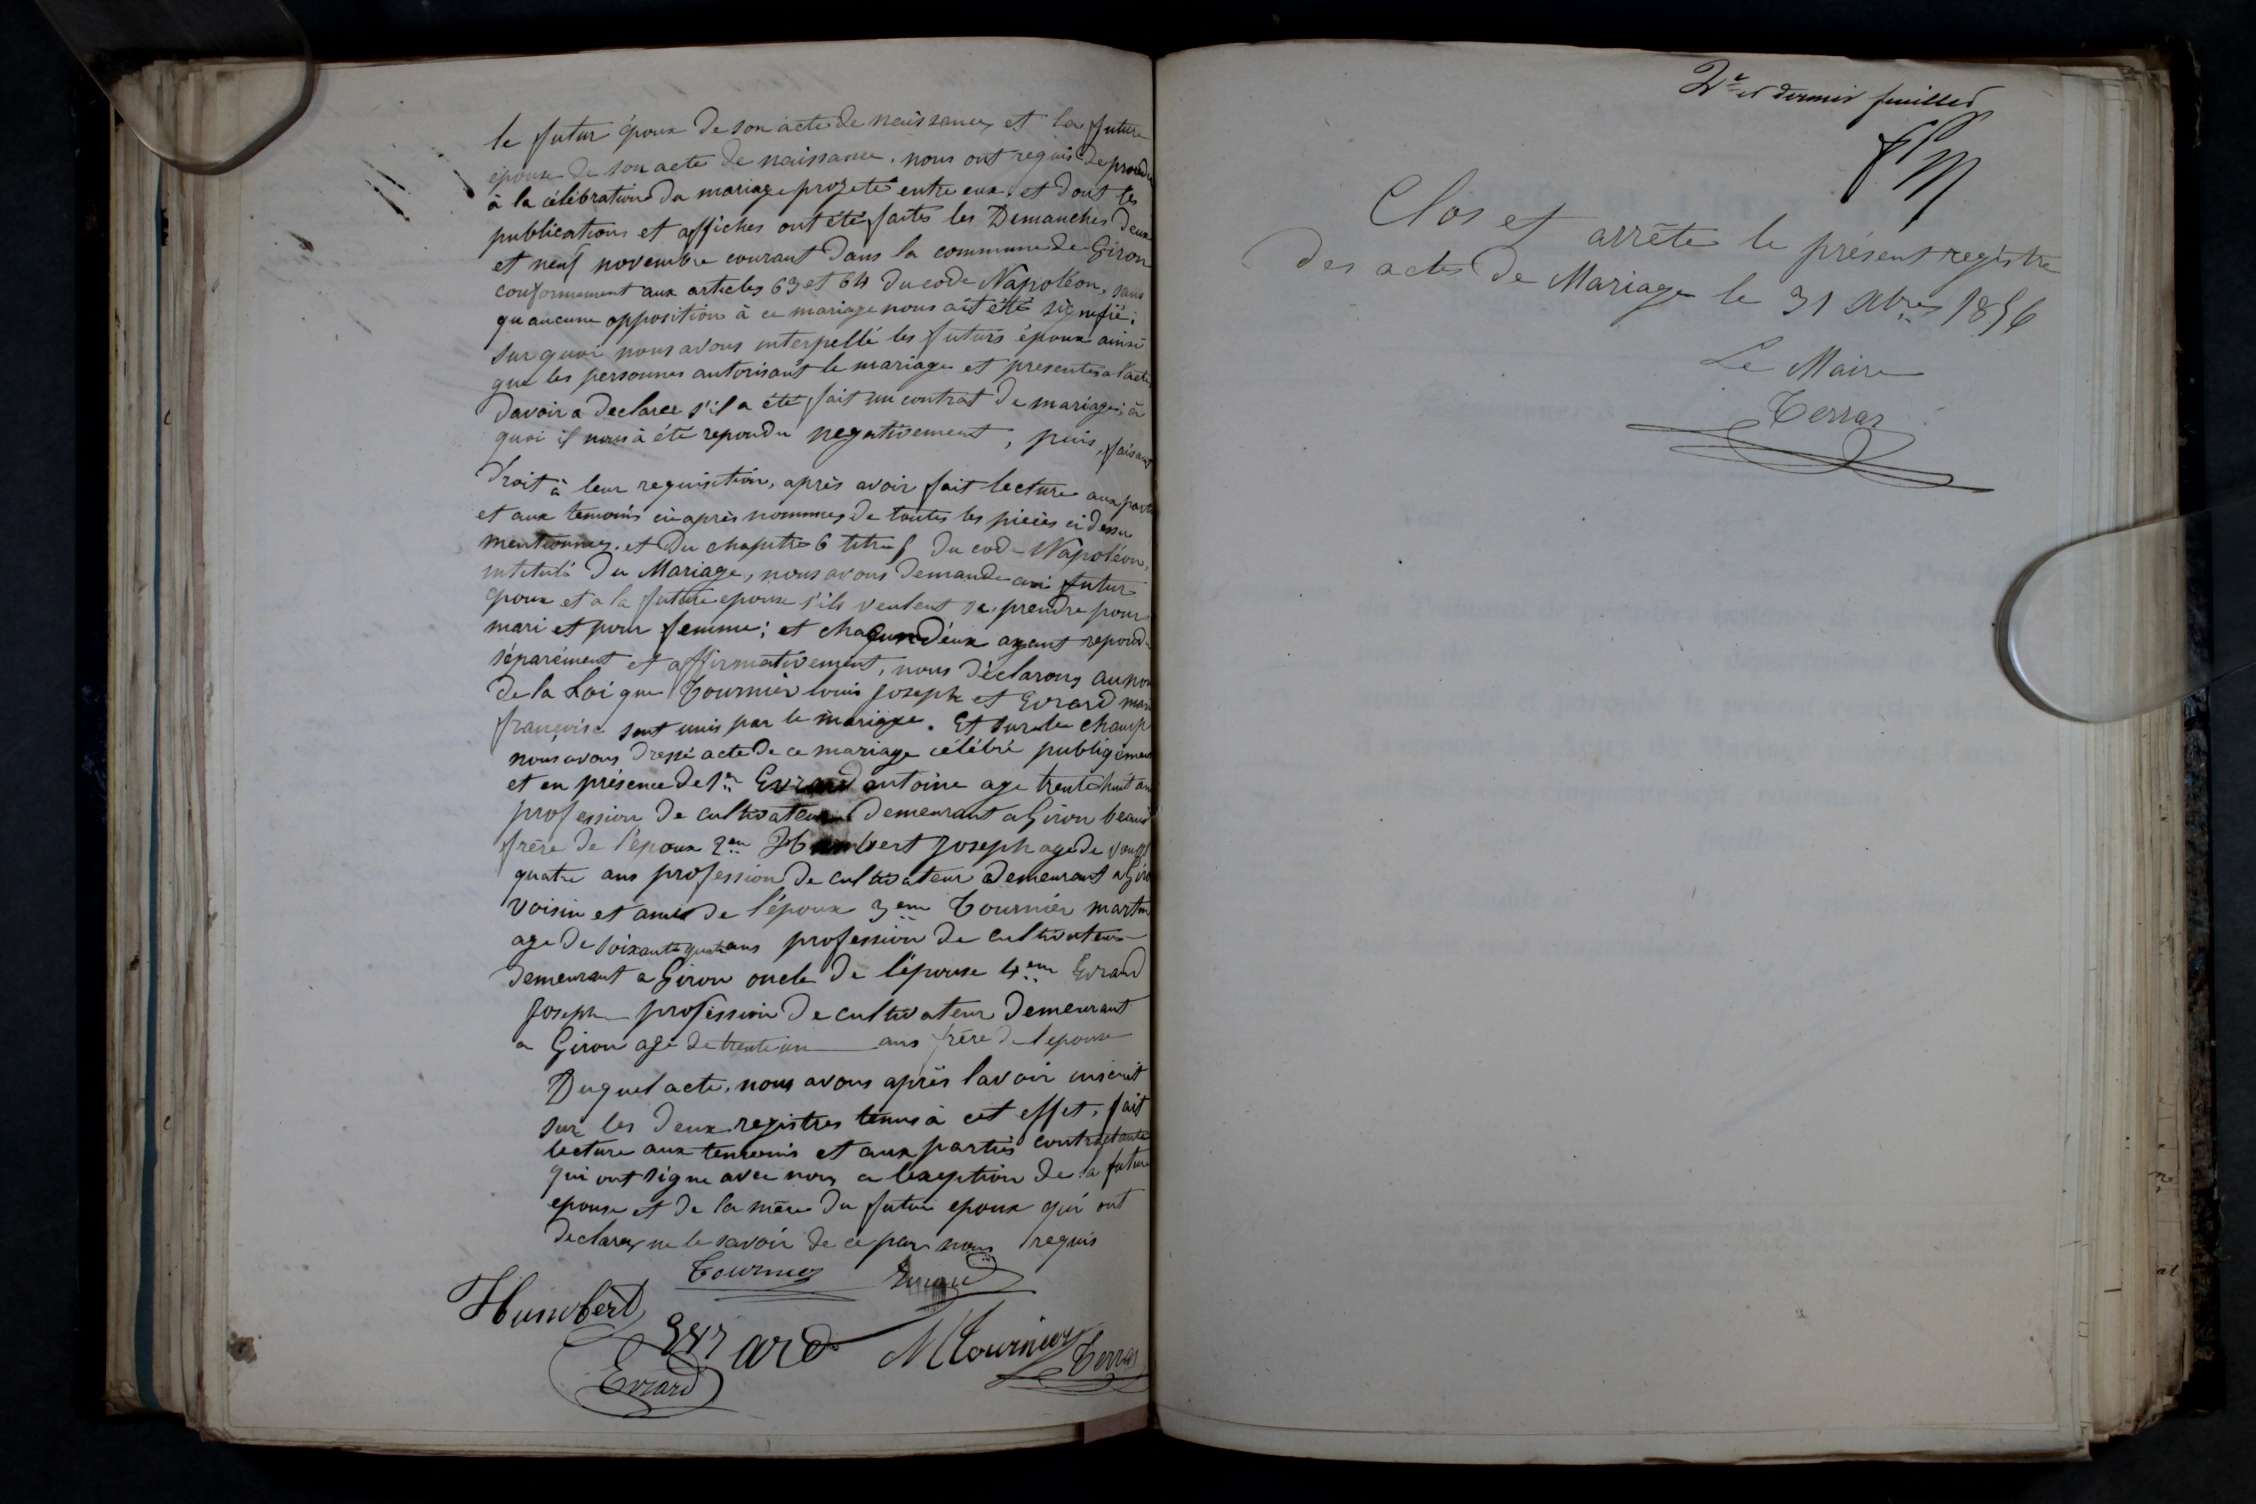 le futur époux de son acte de naissance, et la future
epouse de son acte de naissance. nous ont requis de proced
à la célébration du mariage projeté entre eux. et dont les
publications et affiches ont été faites les Dimanches deux
et neuf novembre courant dans la commune de Giron
conformement aux articles 63 et 64 du code Napoléon, sans
qu'aucune opposition à ce mariage nous ait été signifié;
sur quoi nous avons interpellé les futurs époux ainsi
que les personnes autorisant le mariage et presentes a l'acte
davoir a declarer s'il a été fait un contrat de mariage; à
quoi il nous à été repondu negativement, puis, faisant
droit à leur requisition, après avoir fait lecture aux parti
et aux temoins ci après nommes de toutes les pièces ci dessu
mentionnes. et du chapitre 6 titre 5 du code Napoléon,
intitulé du Mariage, nous avons demande au futur
epoux et a la future epouse s'ils veulent se prendre pour
mari et pour femme; et chaqun d'eux ayant repondu
séparément et affirmativement, nous déclarons au nom
de la Loi que Tournier louis joseph et Evrard mari
françoise sont unis par le mariage. Et sur le champ
nous avons dressé acte de ce mariage célébré publiqemen
et en présence de 1er Evrard antoine age trente huit an
profession de cultivateur demeurant a Giron beaux
frère de l'époux 2em Humbert Joseph age de vongt
quatre ans profession de cultivateur demeurant a Giro
voisin et ami de l'époux 3em Tournier martin
age de soixante quatre ans profession de cultivateur
demeurant a Giron oncle de l'épouse 4em Evrard
Joseph profession de cultivateur demeurant
a Giron age de trente un ans frère de l'epouse
Duquel acte, nous avons après lavoir inscrit
sur les deux registres tenus à cet effet, fait
lecture aux temoins et aux parties contractante
qui ont signe avec nous a lexeption de la future
epouse et de la mère du futur epoux qui ont
declarer ne le savoir de ce par nous requis
Tournier Evrard
Humbert
Evrard M Tournier Terraz
Evrard
2e et dernier feuillet
Clos et arrêté le présent registre
des actes de Mariage le 31 Xbre 1856
Le Maire
Terraz